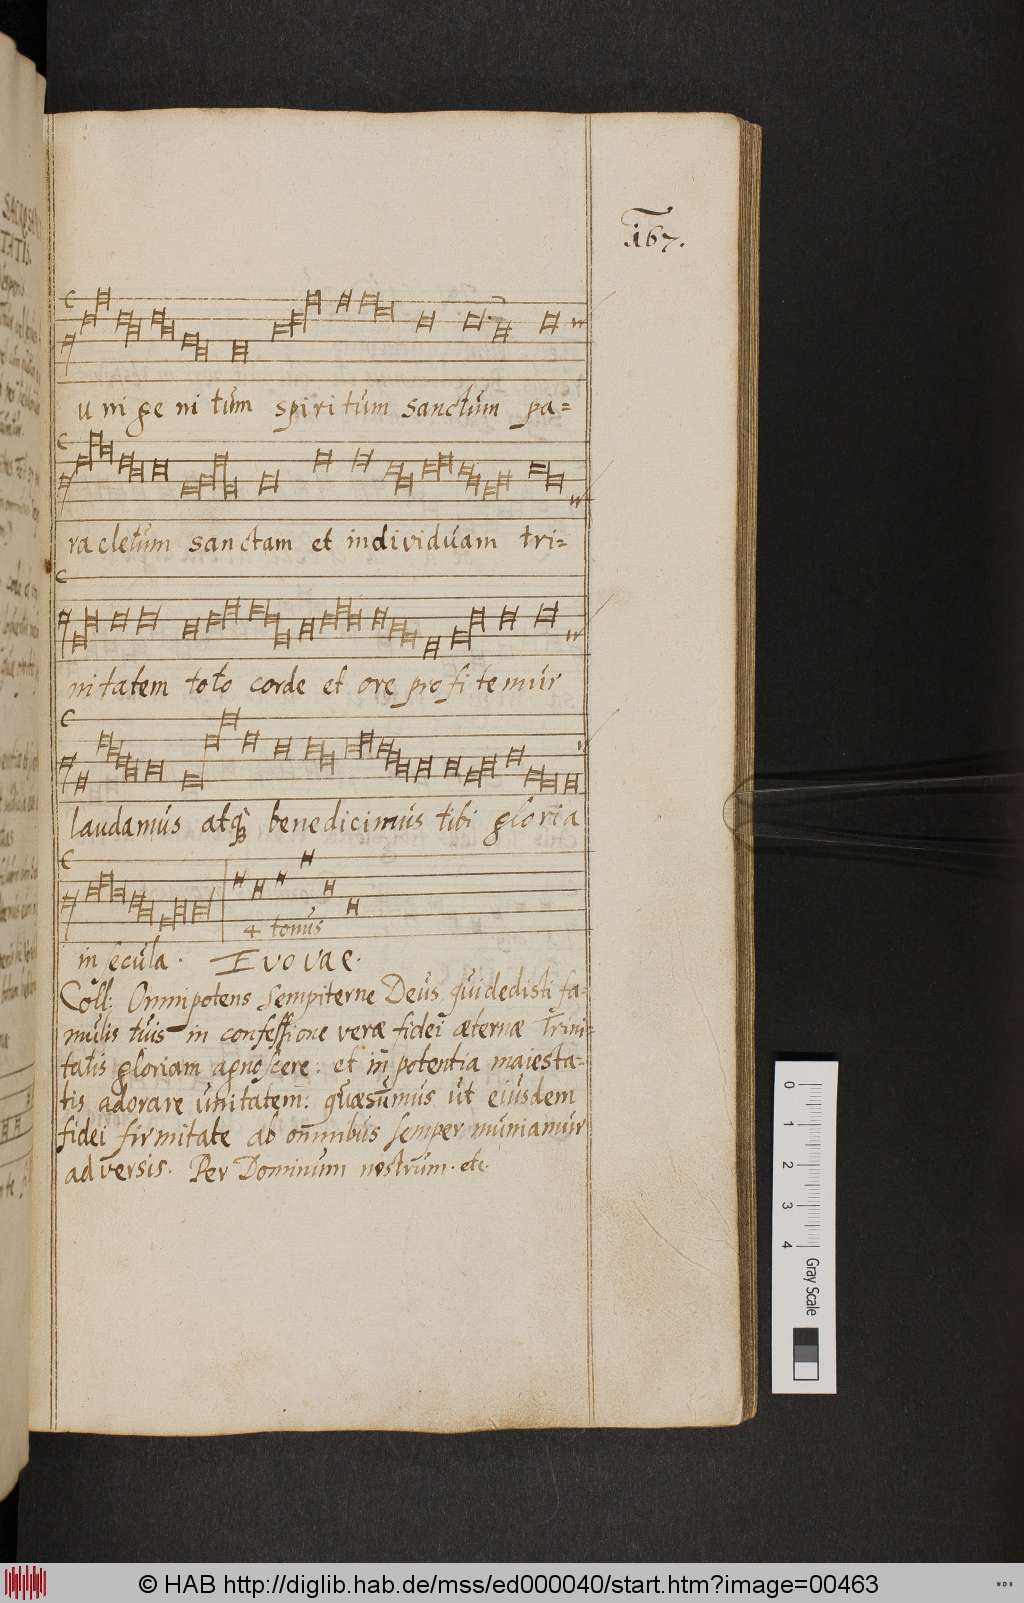 167.
u ni ge ni tum spiri tum sanctum pa=
ra cletum sanctam et individuam tri=
nitatem toto corde et ore pro fi te mur
laudamus atq₃ benedicimus tibi gloria
4 tonus
in secula. Evovae.
Coll: Omnipotens sempiterne Deus, qui dedisti fa=
mulis tuis in confessione verae fidei aeternae Trini=
tatis gloriam agnoscere: et in potentia maiesta=
tis adorare unitatem: quaesumus ut eiusdem
fidei firmitate ab omnibus semper muniamur
adversis. Per Dominum nostrum. etc.
0
1
2
3
4
Gray Scale
© HAB http://diglib.hab.de/mss/ed000040/start.htm?image=00463